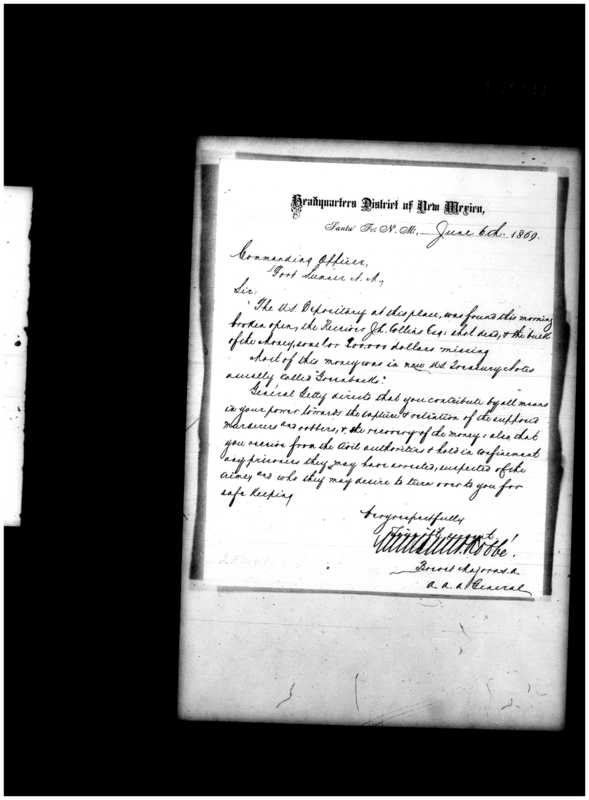 Headquarters District of New Mexico,
Santa Fé, N. M., June 6th. 1869.
Commanding Officer,
Fort Sumner N. M.,
Sir:
The U.S. Depositary at this place, was found this morning
broken open, the Receiver J. L. Collins Esq: shot dead, & the bulk
of the money, some 100.000 dollars missing
Most of this money was in new U.S. Treasury Notes
usually called "Greenbacks".
General Getty directs that you contribute by all means
in your power towards the capture & retention of the supposed
murderers and robbers, & the recovery of the money: also that
you receive from the Civil authorities & hold in confinement
any prisoners they may have arrested, suspected of the
crime, and who they may desire to turn over to you for
safe keeping
Very respectfully
Kobbé.
Brevet Major U.S.A.
A. A. A. General